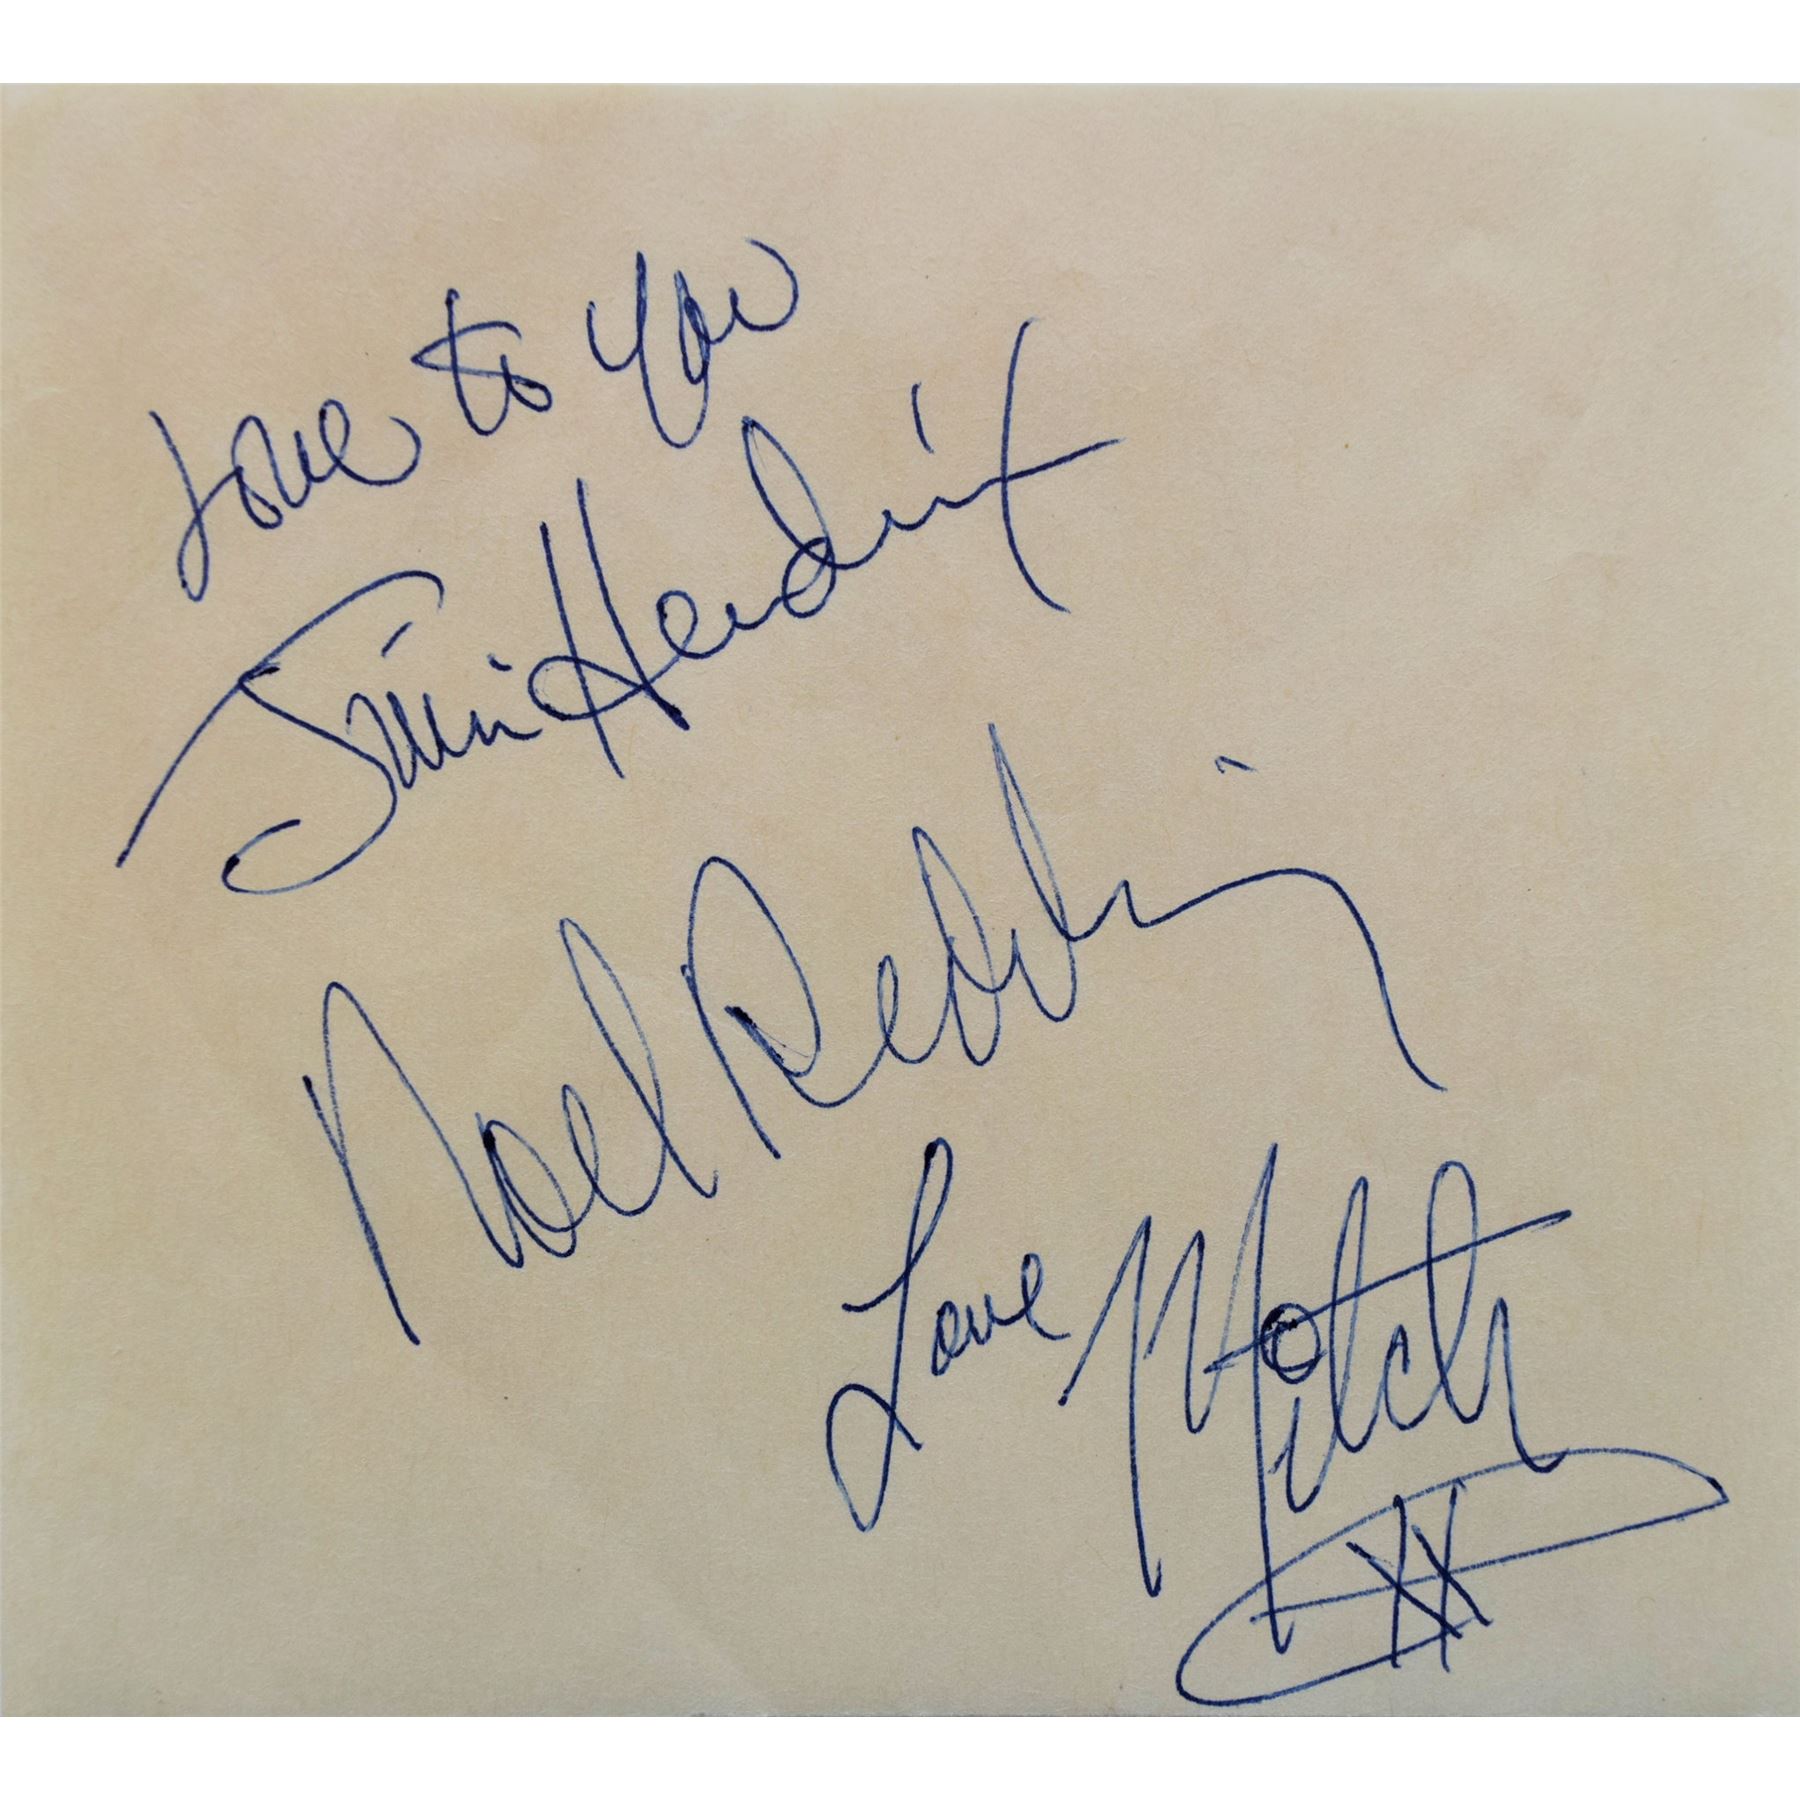 Love to you
Jimi Hendrix
Noel Redding
Love Mitch
XX